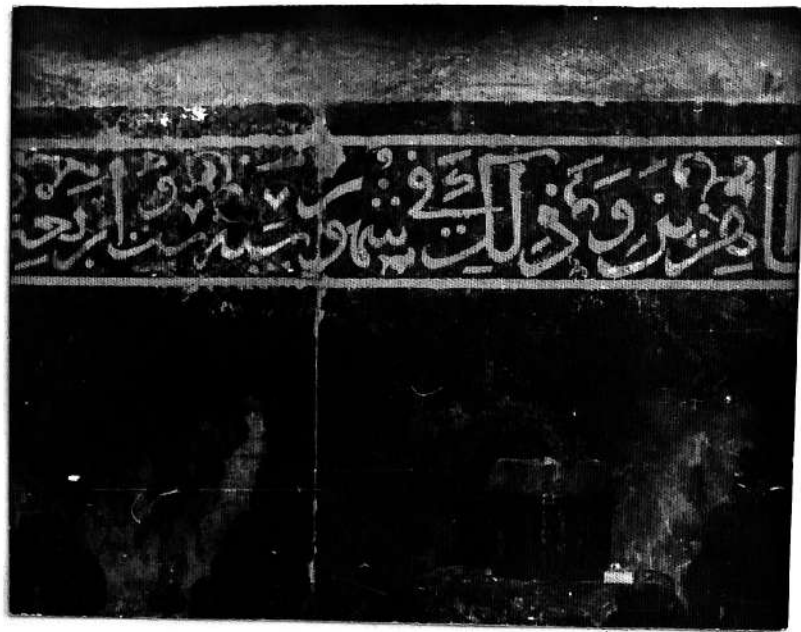 الطاهرين وذلك في شهور سنة ست واربعين